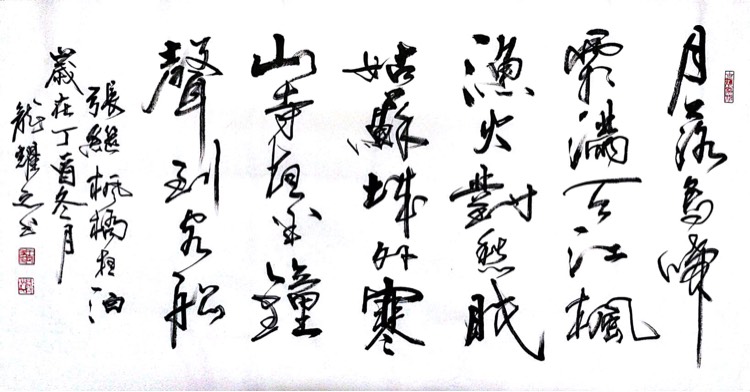 月落烏啼
霜滿天江楓
漁火對愁眠
姑蘇城外寒
山寺夜半鐘
聲到客船
張繼楓橋夜泊
歲在丁酉冬月
龍耀书